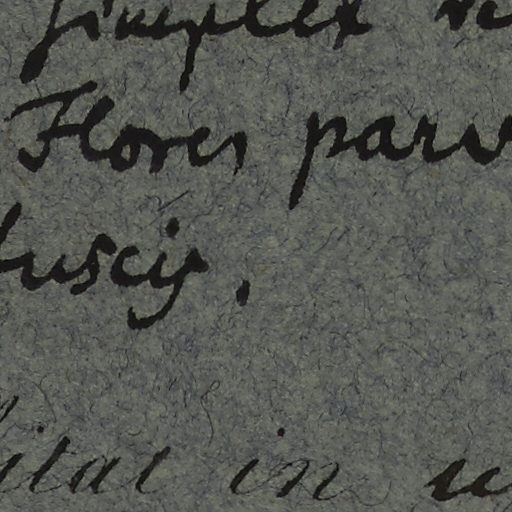 simplex
Flores parv
fuscis.
in